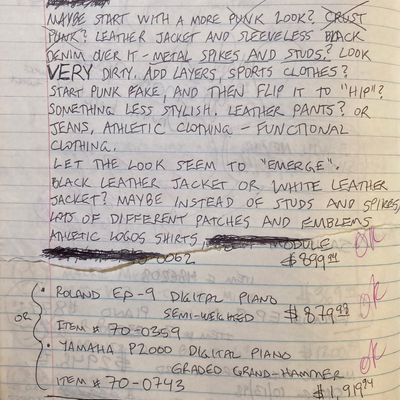 MAYBE START WITH A MORE PUNK LOOK? CRUST
PUNK? LEATHER JACKET AND SLEEVELESS BLACK
DENIM OVER IT - METAL SPIKES AND STUDS? LOOK
VERY DIRTY. ADD LAYERS, SPORTS CLOTHES?
START PUNK FAKE, AND THEN FLIP IT TO "HIP"?
SOMETHING LESS STYLISH. LEATHER PANTS? OR
JEANS, ATHLETIC CLOTHING - FUNCTIONAL
CLOTHING.
LET THE LOOK SEEM TO "EMERGE".
BLACK LEATHER JACKET OR WHITE LEATHER
JACKET? MAYBE INSTEAD OF STUDS AND SPIKES,
LOTS OF DIFFERENT PATCHES AND EMBLEMS
ATHLETIC LOGOS SHIRTS MODULE OK
0062 $899.99
• ROLAND EP-9 DIGITAL PIANO OK
SEMI-WEIGHED $879.99
OR ITEM # 70-0359
• YAMAHA P2000 DIGITAL PIANO OK
GRADED GRAND-HAMMER
ITEM # 70-0743 $1,919.24